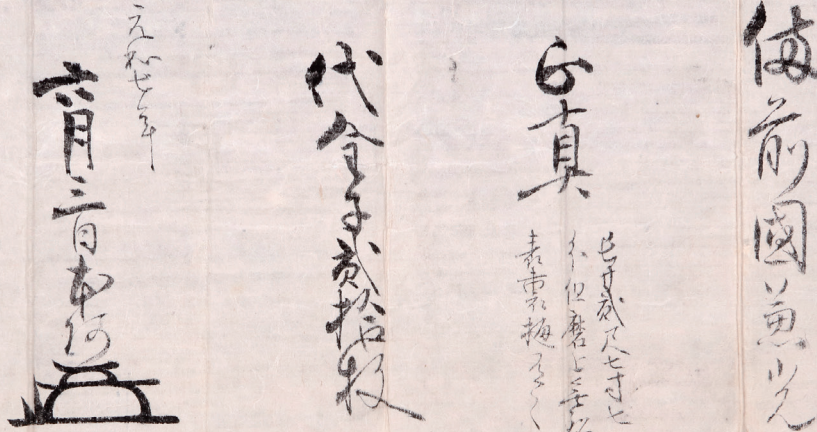 備前國兼光
正真
長サ貳尺七寸七
分但磨上無銘
表裏樋有之
代金子貳拾枚
元和七年
六月三日本阿